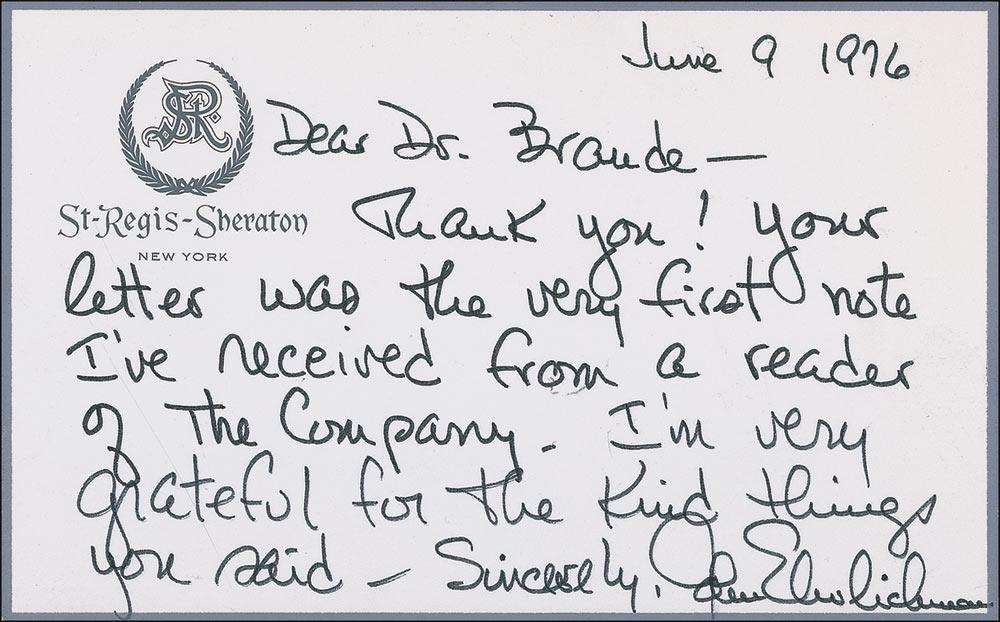 June 9 1976
SR
Dear Dr. Braude —
St-Regis-Sheraton
NEW YORK
Thank you! Your
letter was the very first note
I've received from a reader
of The Company. I'm very
grateful for the kind things
you said — Sincerely, John Ehrlichman